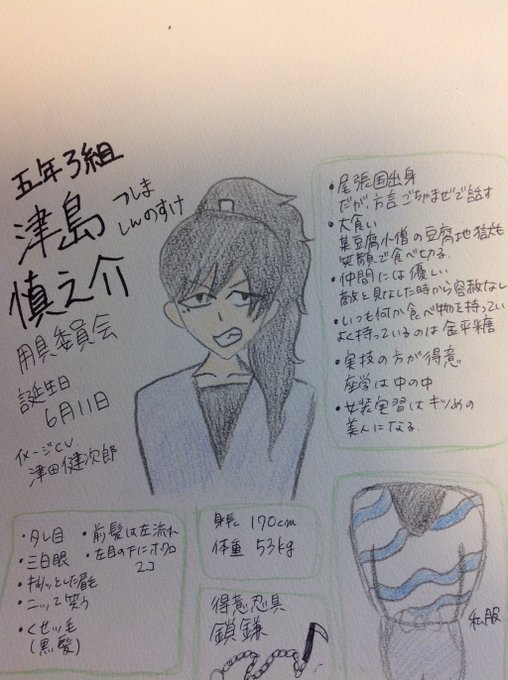 五年3組
津島
慎之介
つしま
しんのすけ
用具委員会
誕生日
6月11日
イメージCV.
津田健次郎
・尾張国出身
だが、方言ごちゃまぜで話す
・大食い
某豆腐小僧の豆腐地獄も
笑顔で食べ切る。
・仲間には優しい
敵と見なした時から容赦なし
・いつも何か食べ物を持ってい
よく持っているのは金平糖
・実技の方が得意
座学は中の中
・女装実習はキツめの
美人になる。
・タレ目
・三白眼
・キリッとした眉毛
・ニッって笑う
・くせっ毛
(黒髪)
・前髪は左流れ
・左目の下にホクロ
2コ
身長 170cm
体重 53kg
得意忍具
鎖鎌
私服